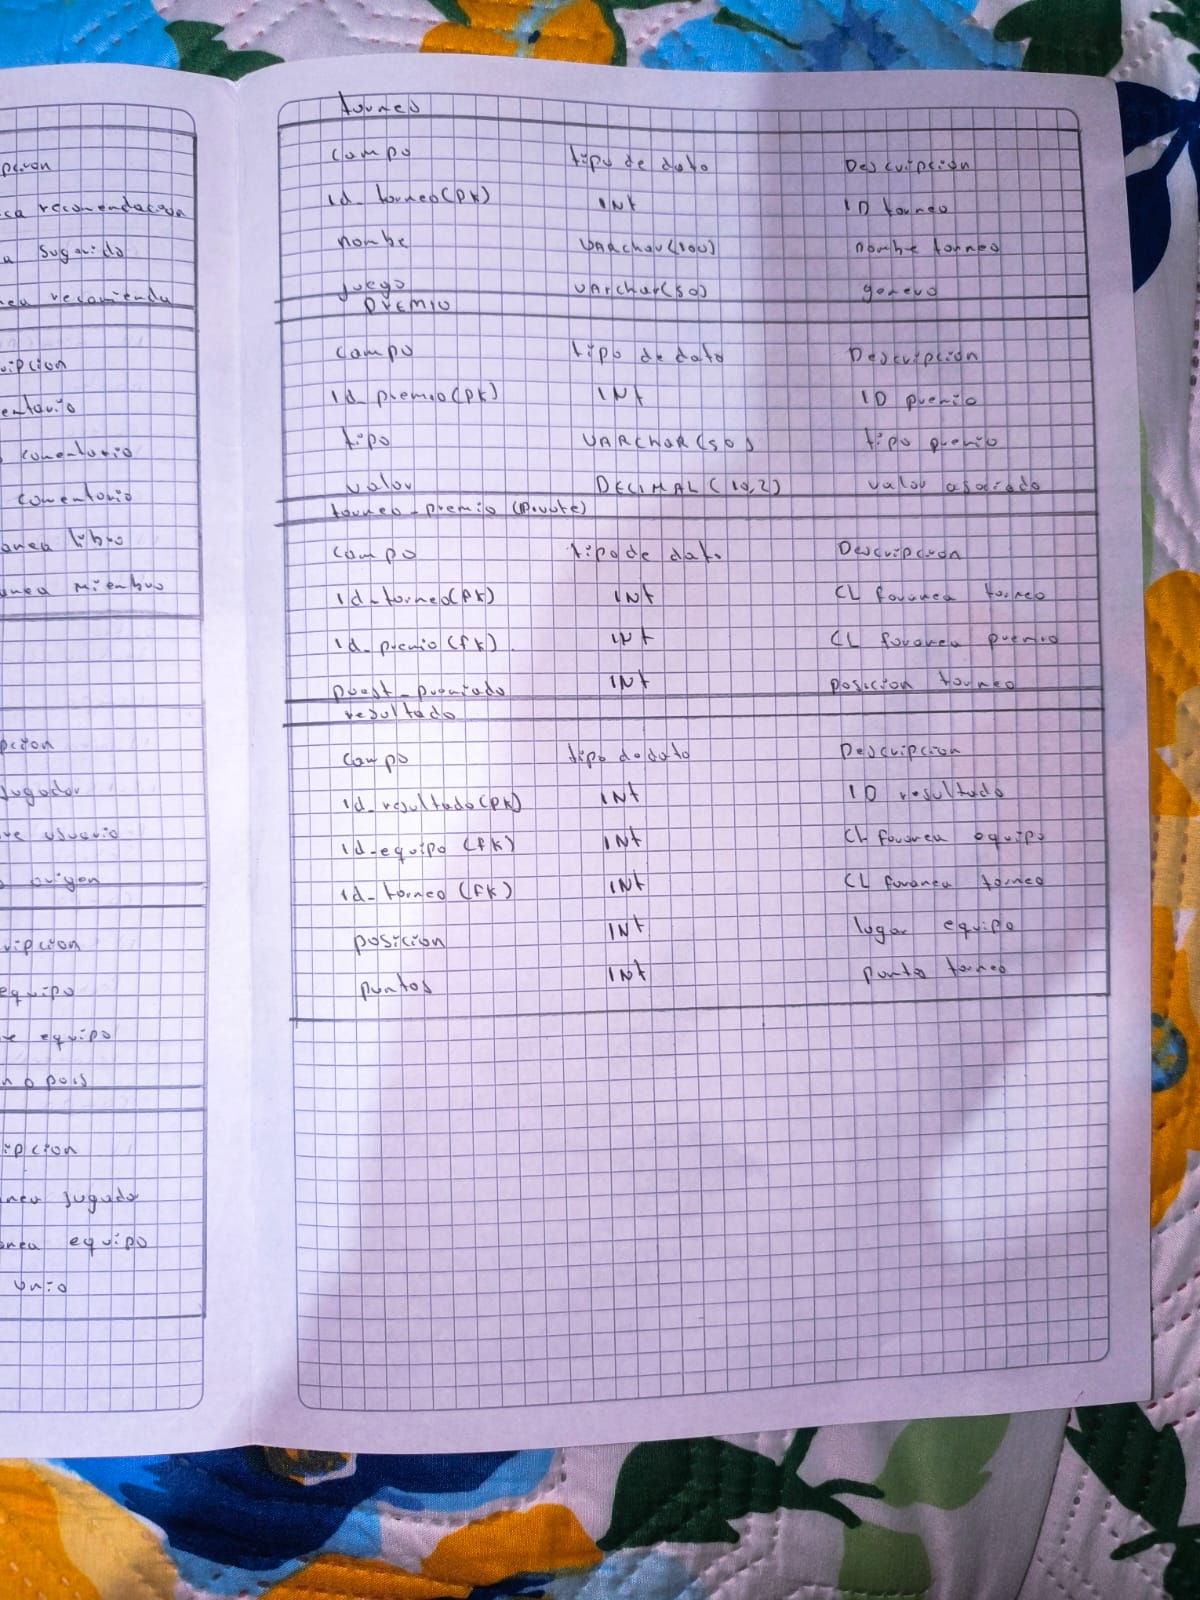 pcion
ca recomendacion
a Sugerido
nea recomienda
ripcion
entario
comentario
comentario
anea libro
anea miembro
pcion
jugador
re usuario
origen
ripcion
equipo
re equipo
n o pais
ipcion
nea jugado
anea equipo
unio
torneo
campo tipo de dato Descripcion
id_torneo(PK) INt ID torneo
nombe VARchar(100) nombe torneo
juego VARchar(50) genero
PREMIO
campo tipo de dato Descripcion
id_premio(PK) INt ID premio
tipo VARCHAR(50) tipo premio
valor DECIMAL(10,2) valor asociado
torneo-premio (Pivote)
campo tipo de dato Descripcion
id_torneo(PK) INt CL foranea torneo
id_premio(fK) INt CL foranea premio
puest_premiado INt posicion torneo
resultado
campo tipo de dato Descripcion
id_resultado(PK) INt ID resultado
id_equipo (fK) INt CL foranea equipo
id_torneo (fK) INt CL foranea torneo
posicion INt lugar equipo
puntos INt punto torneo